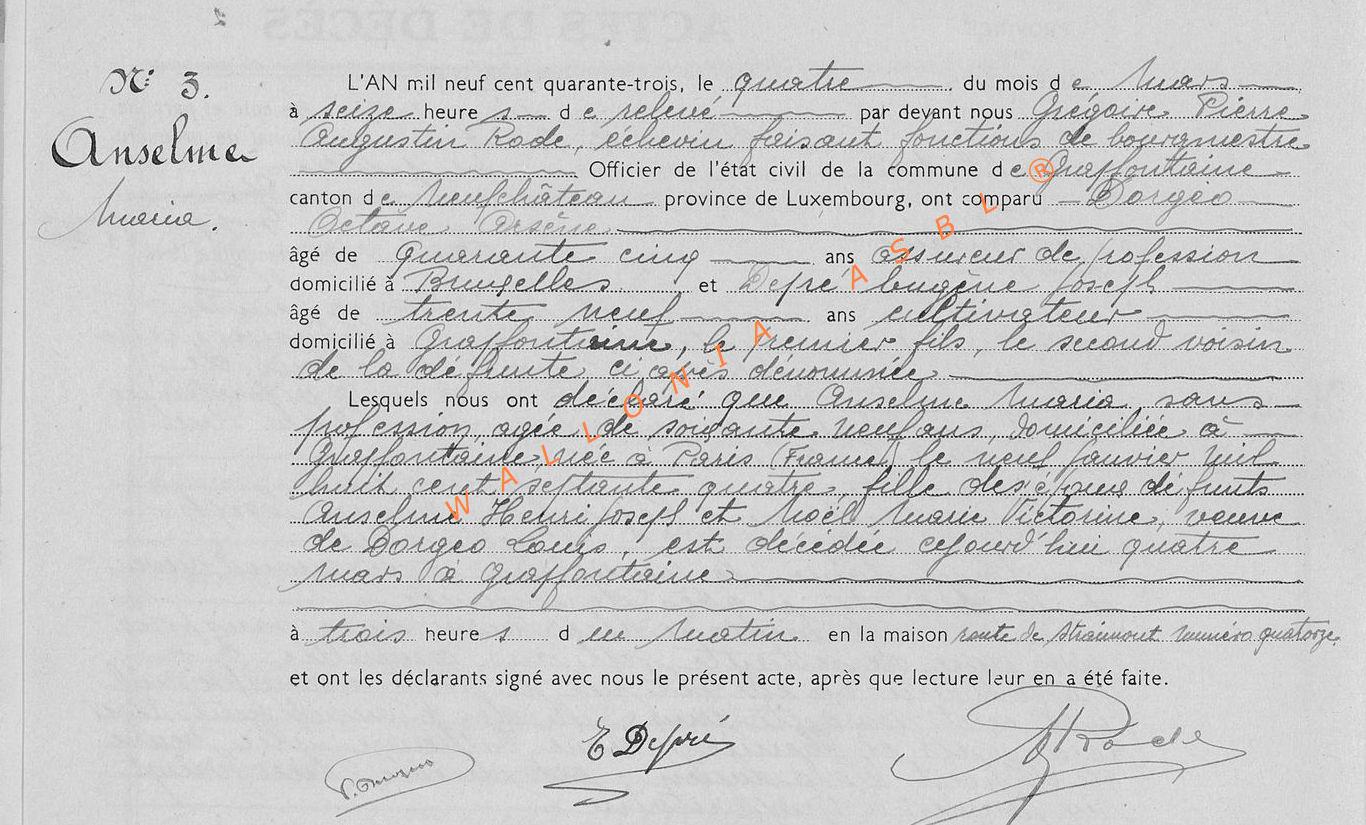 N° 3.
Anselme
Maria.
L'AN mil neuf cent quarante-trois, le quatre du mois de Mars
à seize heures de relevé par devant nous Grégoire Pierre
Augustin Rode, échevin faisant fonctions de bourgmestre
Officier de l'état civil de la commune de Grapfontaine
canton de Neufchâteau province de Luxembourg, ont comparu Dorgeo
Octave Arsène
âgé de quarante cinq ans assureur de profession
domicilié à Bruxelles et Depré Eugène Joseph
âgé de trente neuf ans cultivateur
domicilié à Grapfontaine, le premier fils, le second voisin
de la défunte ci après dénommée
Lesquels nous ont déclaré que Anselme Maria, sans
profession, agée de soixante neuf ans, domiciliée à
Grapfontaine, née à Paris (France) le neuf janvier mil
huit cent septante quatre, fille des époux défunts
Anselme Henri Joseph et Noël Marie Victorine, veuve
de Dorgeo Louis, est décédée cejourd'hui quatre
mars à Grapfontaine
à trois heures du matin en la maison route de Straimont numéro quatorze
et ont les déclarants signé avec nous le présent acte, après que lecture leur en a été faite.
E Depré
Rode
WALLONIA ASBL ®